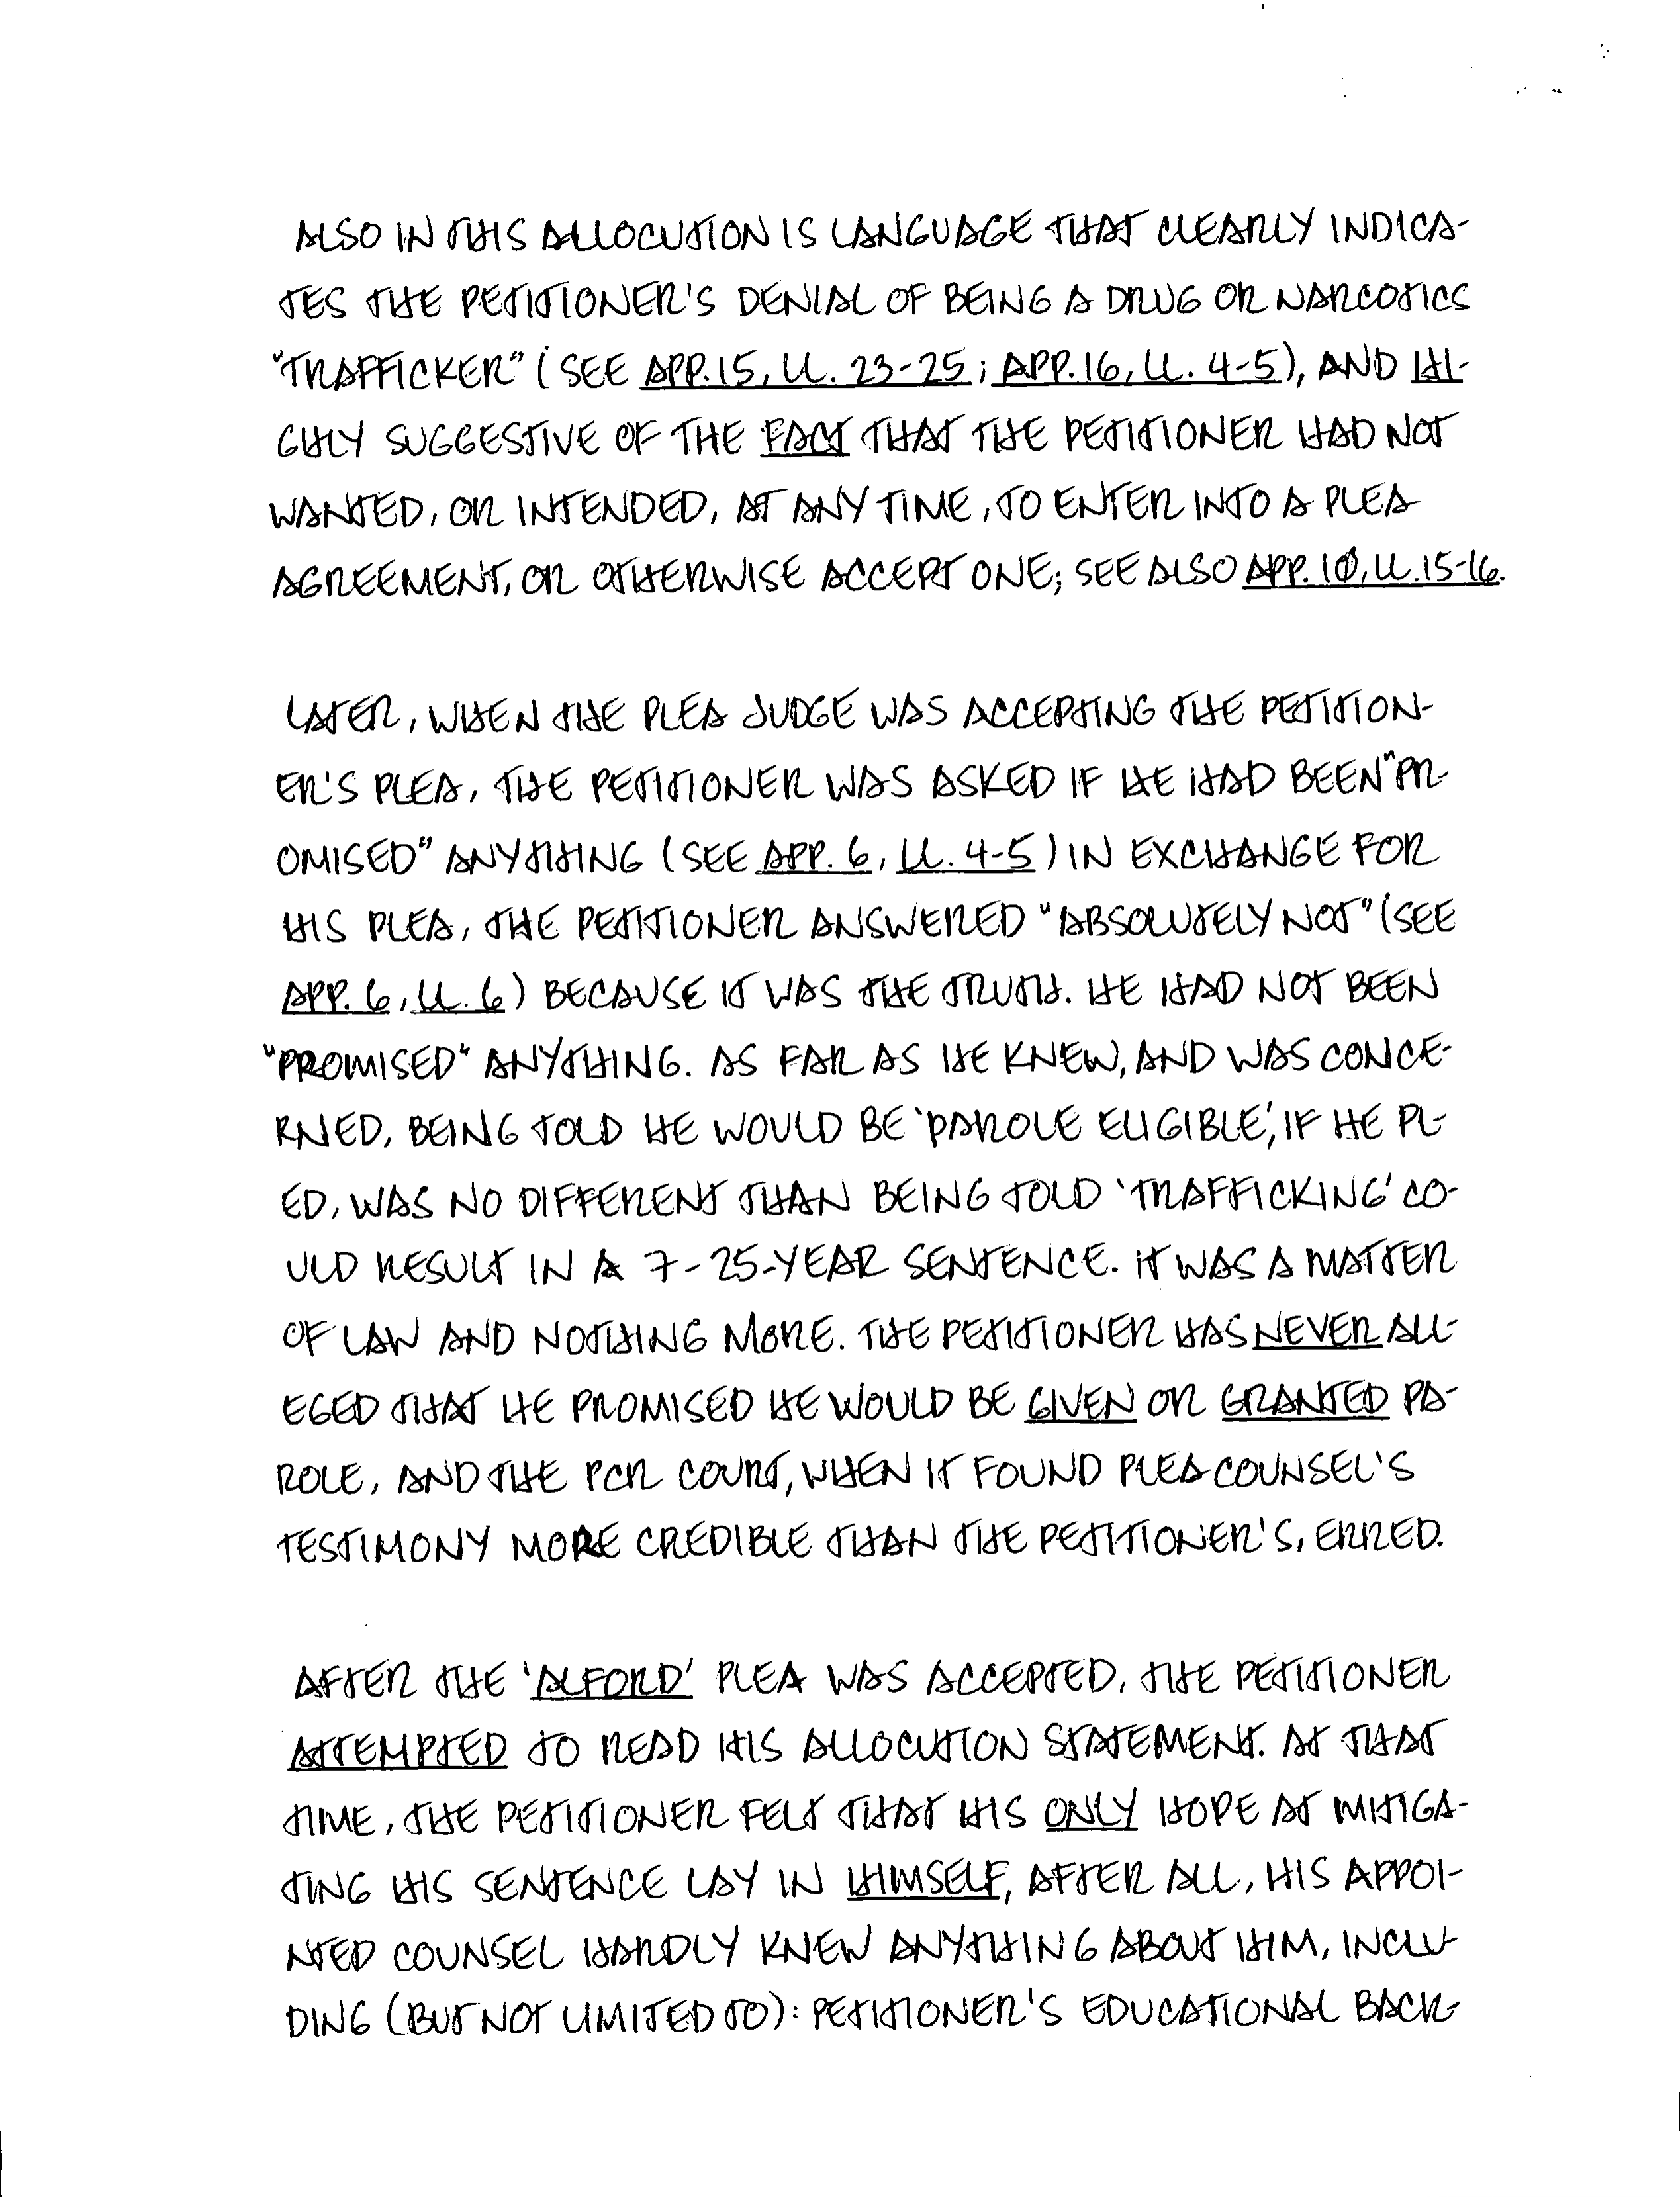 ALSO IN THIS ALLOCUTION IS LANGUAGE THAT CLEARLY INDICA-
TES THE PETITIONER'S DENIAL OF BEING A DRUG OR NARCOTICS
"TRAFFICKER" (SEE APP. 15, LL. 23-25; APP. 16, LL. 4-5), AND HI-
GHLY SUGGESTIVE OF THE FACT THAT THE PETITIONER HAD NOT
WANTED, OR INTENDED, AT ANY TIME, TO ENTER INTO A PLEA
AGREEMENT, OR OTHERWISE ACCEPT ONE; SEE ALSO APP. 10, LL. 15-16.
LATER, WHEN THE PLEA JUDGE WAS ACCEPTING THE PETITION-
ER'S PLEA, THE PETITIONER WAS ASKED IF HE HAD BEEN "PR-
OMISED" ANYTHING (SEE APP. 6, LL. 4-5) IN EXCHANGE FOR
HIS PLEA, THE PETITIONER ANSWERED "ABSOLUTELY NOT" (SEE
APP. 6, LL. 6) BECAUSE IT WAS THE TRUTH. HE HAD NOT BEEN
"PROMISED" ANYTHING. AS FAR AS HE KNEW, AND WAS CONCE-
RNED, BEING TOLD HE WOULD BE 'PAROLE ELIGIBLE', IF HE PL-
ED, WAS NO DIFFERENT THAN BEING TOLD 'TRAFFICKING' CO-
ULD RESULT IN A 7-25-YEAR SENTENCE. IT WAS A MATTER
OF LAW AND NOTHING MORE. THE PETITIONER HAS NEVER ALL-
EGED THAT HE PROMISED HE WOULD BE GIVEN OR GRANTED PA-
ROLE, AND THE PCR COURT, WHEN IT FOUND PLEA COUNSEL'S
TESTIMONY MORE CREDIBLE THAN THE PETITIONER'S, ERRED.
AFTER THE 'ALFORD' PLEA WAS ACCEPTED, THE PETITIONER
ATTEMPTED TO READ HIS ALLOCUTION STATEMENT. AT THAT
TIME, THE PETITIONER FELT THAT HIS ONLY HOPE AT MITIGA-
TING HIS SENTENCE LAY IN HIMSELF, AFTER ALL, HIS APPOI-
NTED COUNSEL HARDLY KNEW ANYTHING ABOUT HIM, INCLU-
DING (BUT NOT LIMITED TO): PETITIONER'S EDUCATIONAL BACK-